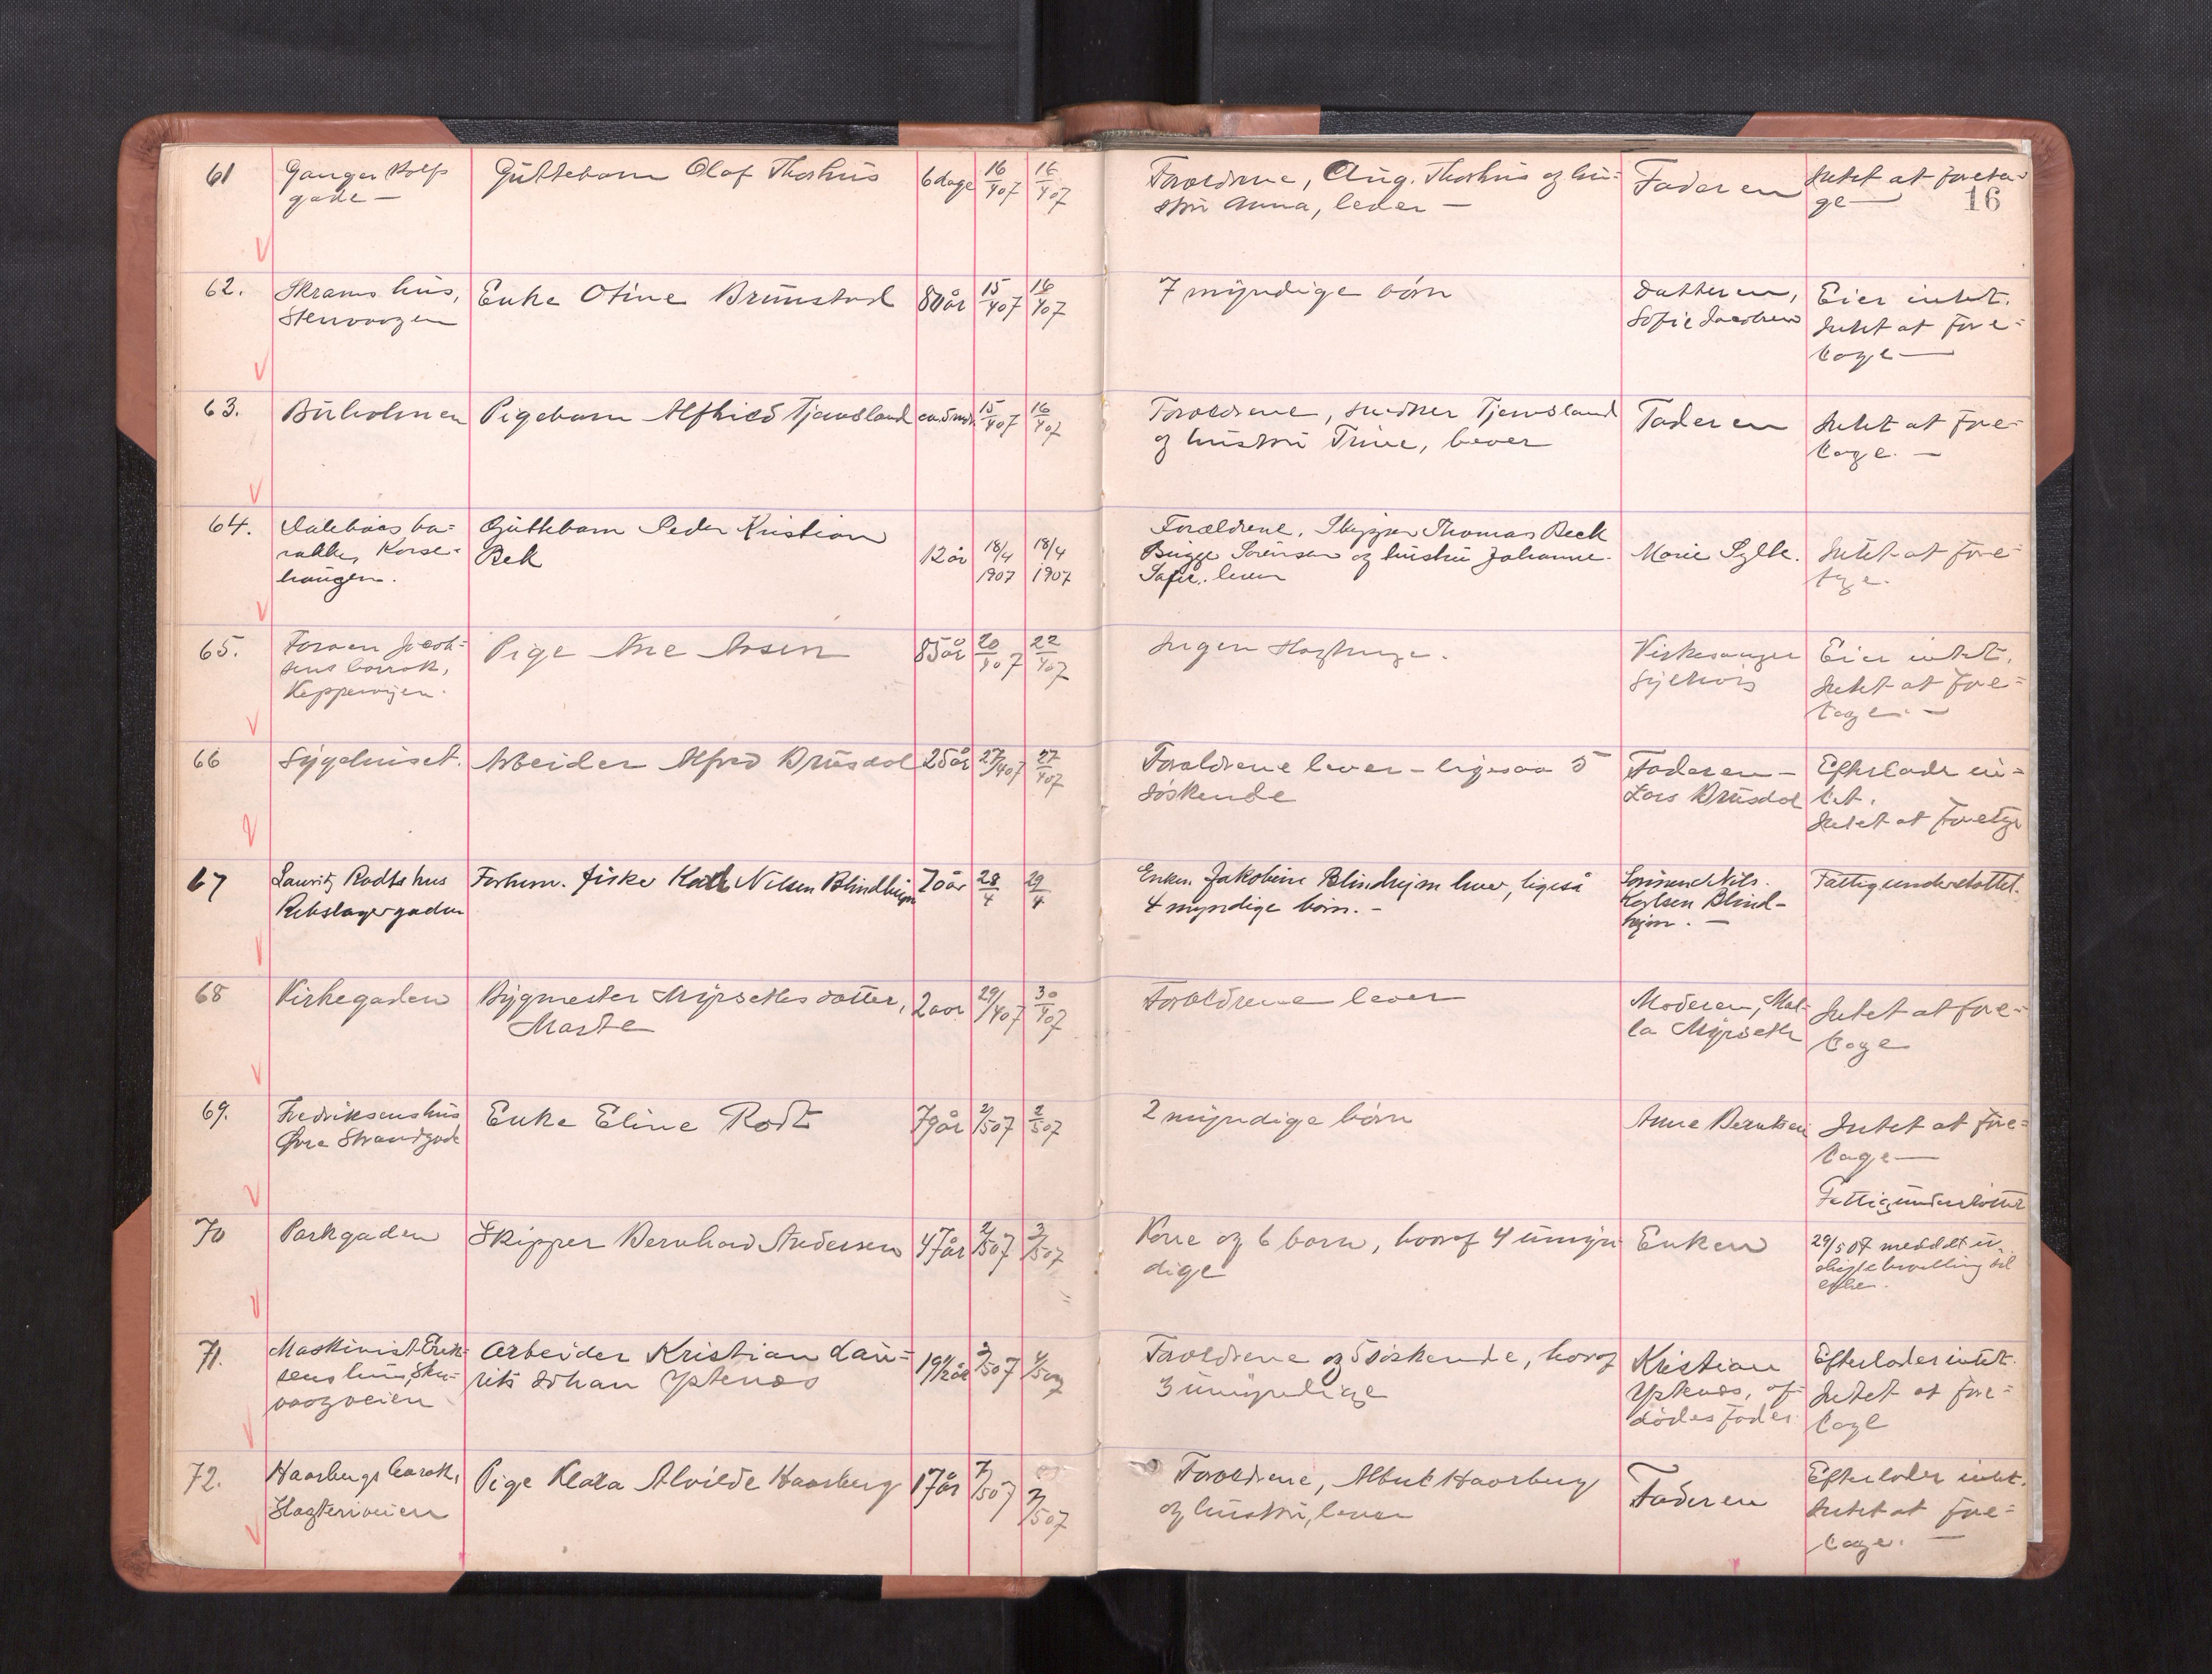 16
61
Ganger Rolfs
gade —
Guttebarn Olaf Thorhus
6 dage
16/4 07
16/4 07
Forældrene, Aug. Thorhus og hu=
stru Anna, lever —
Faderen
Intet at foreta=
ge —
62.
Skrams hus,
Stenvaagen
Enke Otine Brunstad
80 år
15/4 07
16/4 07
7 myndige börn
Datteren,
Sofie Jacobsen
Eier intet.
Intet at fore=
tage —
63.
Buholmen
Pigebarn Alfhild Tjervsland
ca. 5 mdr.
15/4 07
16/4 07
Forældrene, Snedker Tjervsland
og hustru Trine, lever
Faderen
Intet at fore=
tage. —
64.
ba=
rakke, Korse=
haugen.
Guttebarn Peder Kristian
Bek
12 år
18/4
1907
18/4
1907
Forældrene, Skipper Thomas Beck
Bugge Sørensen og hustru Johanne
lever
Marie Sylte.
Intet at fore=
tage.
65.
Jacob=
sens barrak,
Kippervigen.
Pige Ane Aasen
85 år
20/4 07
22/4 07
Ingen
Kirkesanger
Eier intet.
Intet at fore=
tage. —
66
Sygehuset.
Arbeider Alfred Brusdal
25 år
27/4 07
27/4 07
Forældrene lever — ligesaa 5
söskende
Faderen —
Lars Brusdal
Efterlader in=
tet.
Intet at foretge
67
Lauritz Rødts hus
Rebslagergaden
Forhenv. fisker Karl Nilsen Blindheim
70 år
28/4
29/4
Enken Jakobine Blindheim lever, ligeså
4 myndige börn. —
Sønnen Nils
Karlsen Blind-
heim. —
Fattigunderstøttet.
68
Kirkegaden
Bygmester Myrseths datter,
Marte
2 aar
29/4 07
30/4 07
Forældrene lever
Moderen, Mal=
la Myrseth
Intet at fore=
tage
69.
Fredriksens hus
Øvre Strandgade
Enke Eline Rødt
79 år
2/5 07
2/5 07
2 myndige börn
Anne Berntsen
Intet at fore=
tage —
Fattigunderstøttet
70
Parkgaden
Skipper Bernhard Andersen
47 år
2/5 07
3/5 07
Kone og 6 barn, hvoraf 4 umyn
dige
Enken
29/5 07 meddelt u=
skiftebevilling til
enken.
71.
Maskinist Erik=
sens hus, Sku=
vaagveien
Arbeider Kristian Lau=
rits Johan Ystenæs
19 1/2 år
3/5 07
4/5 07
Forældrene og 5 söskende, hvoraf
3 umyndige
Kristian
Ystenæs, af=
dødes fader
Efterlader intet.
Intet at fore=
tage
72.
Haarbergs barak,
Slagteriveien
Pige Klara Alvilde Haarberg
17 år
7/5 07
7/5 07
Forældrene, Albert Haarberg
og hustru, lever
Faderen
Efterlader intet.
Intet at fore=
tage. —